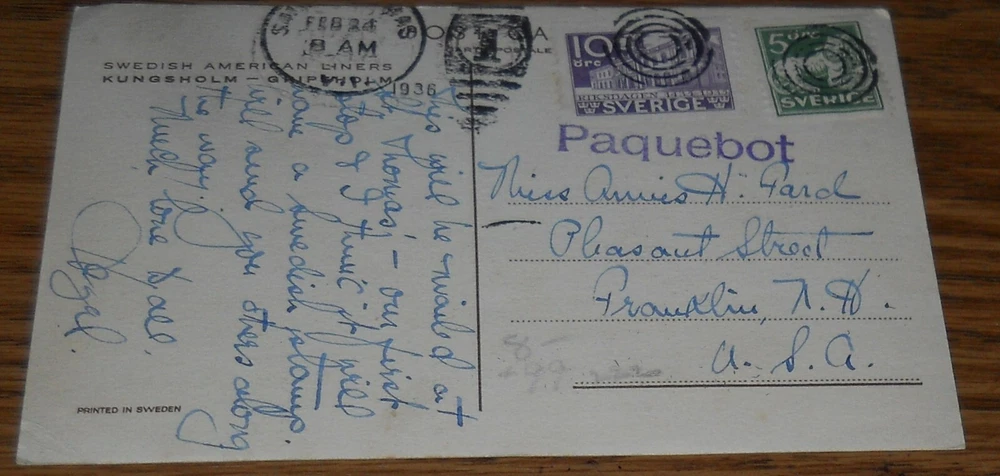 SWEDISH AMERICAN LINERS
KUNGSHOLM – GRIPSHOLM
FEB 24
8 AM
1936
1
POSTALE
10
öre
RIKSDAGEN
SVERIGE
5 öre
SVERIGE
Paquebot
This will be mailed at
St. Thomas' – our first
stop & I think it will
have a Swedish stamp.
Will send you others along
the way.
Much love to all.
Miss Annie H. Fard
Pleasant Street
Franklin, N. H.
U. S. A.
8-
PRINTED IN SWEDEN